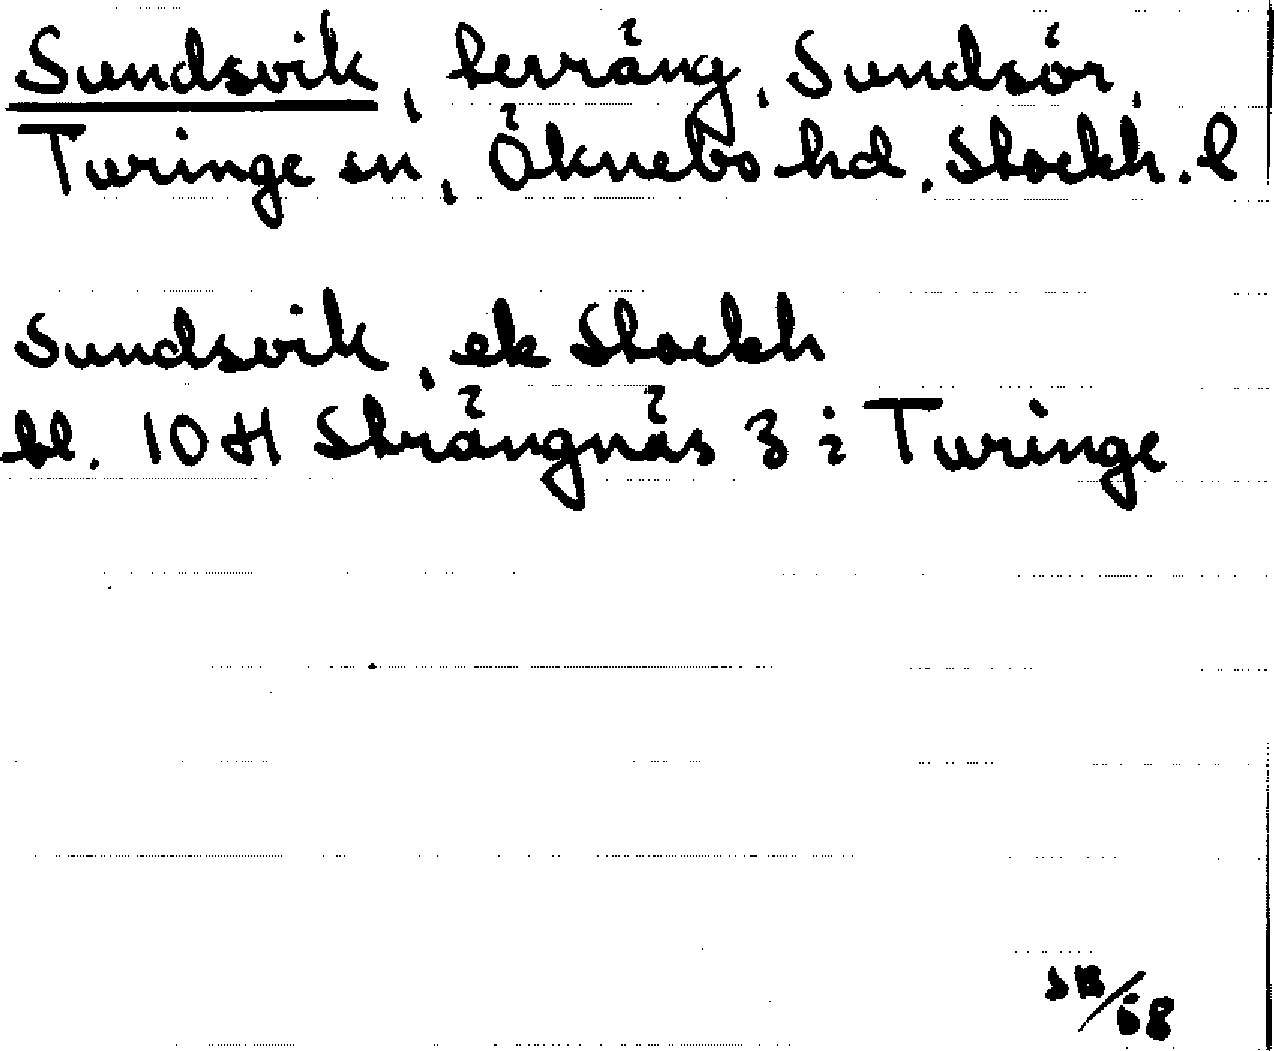 Sundsvik, terräng, Sundsör,
Turinge sn, Öknebo hd, Stockh. l
Sundsvik, ek Stockh
bl. 10H Strängnäs 3 i Turinge
SB/68